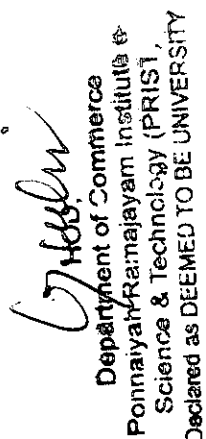 HOD,
Department of Commerce
Ponnaiyah Ramajayam Institute of
Science & Technology (PRIST,
Declared as DEEMED TO BE UNIVERSITY